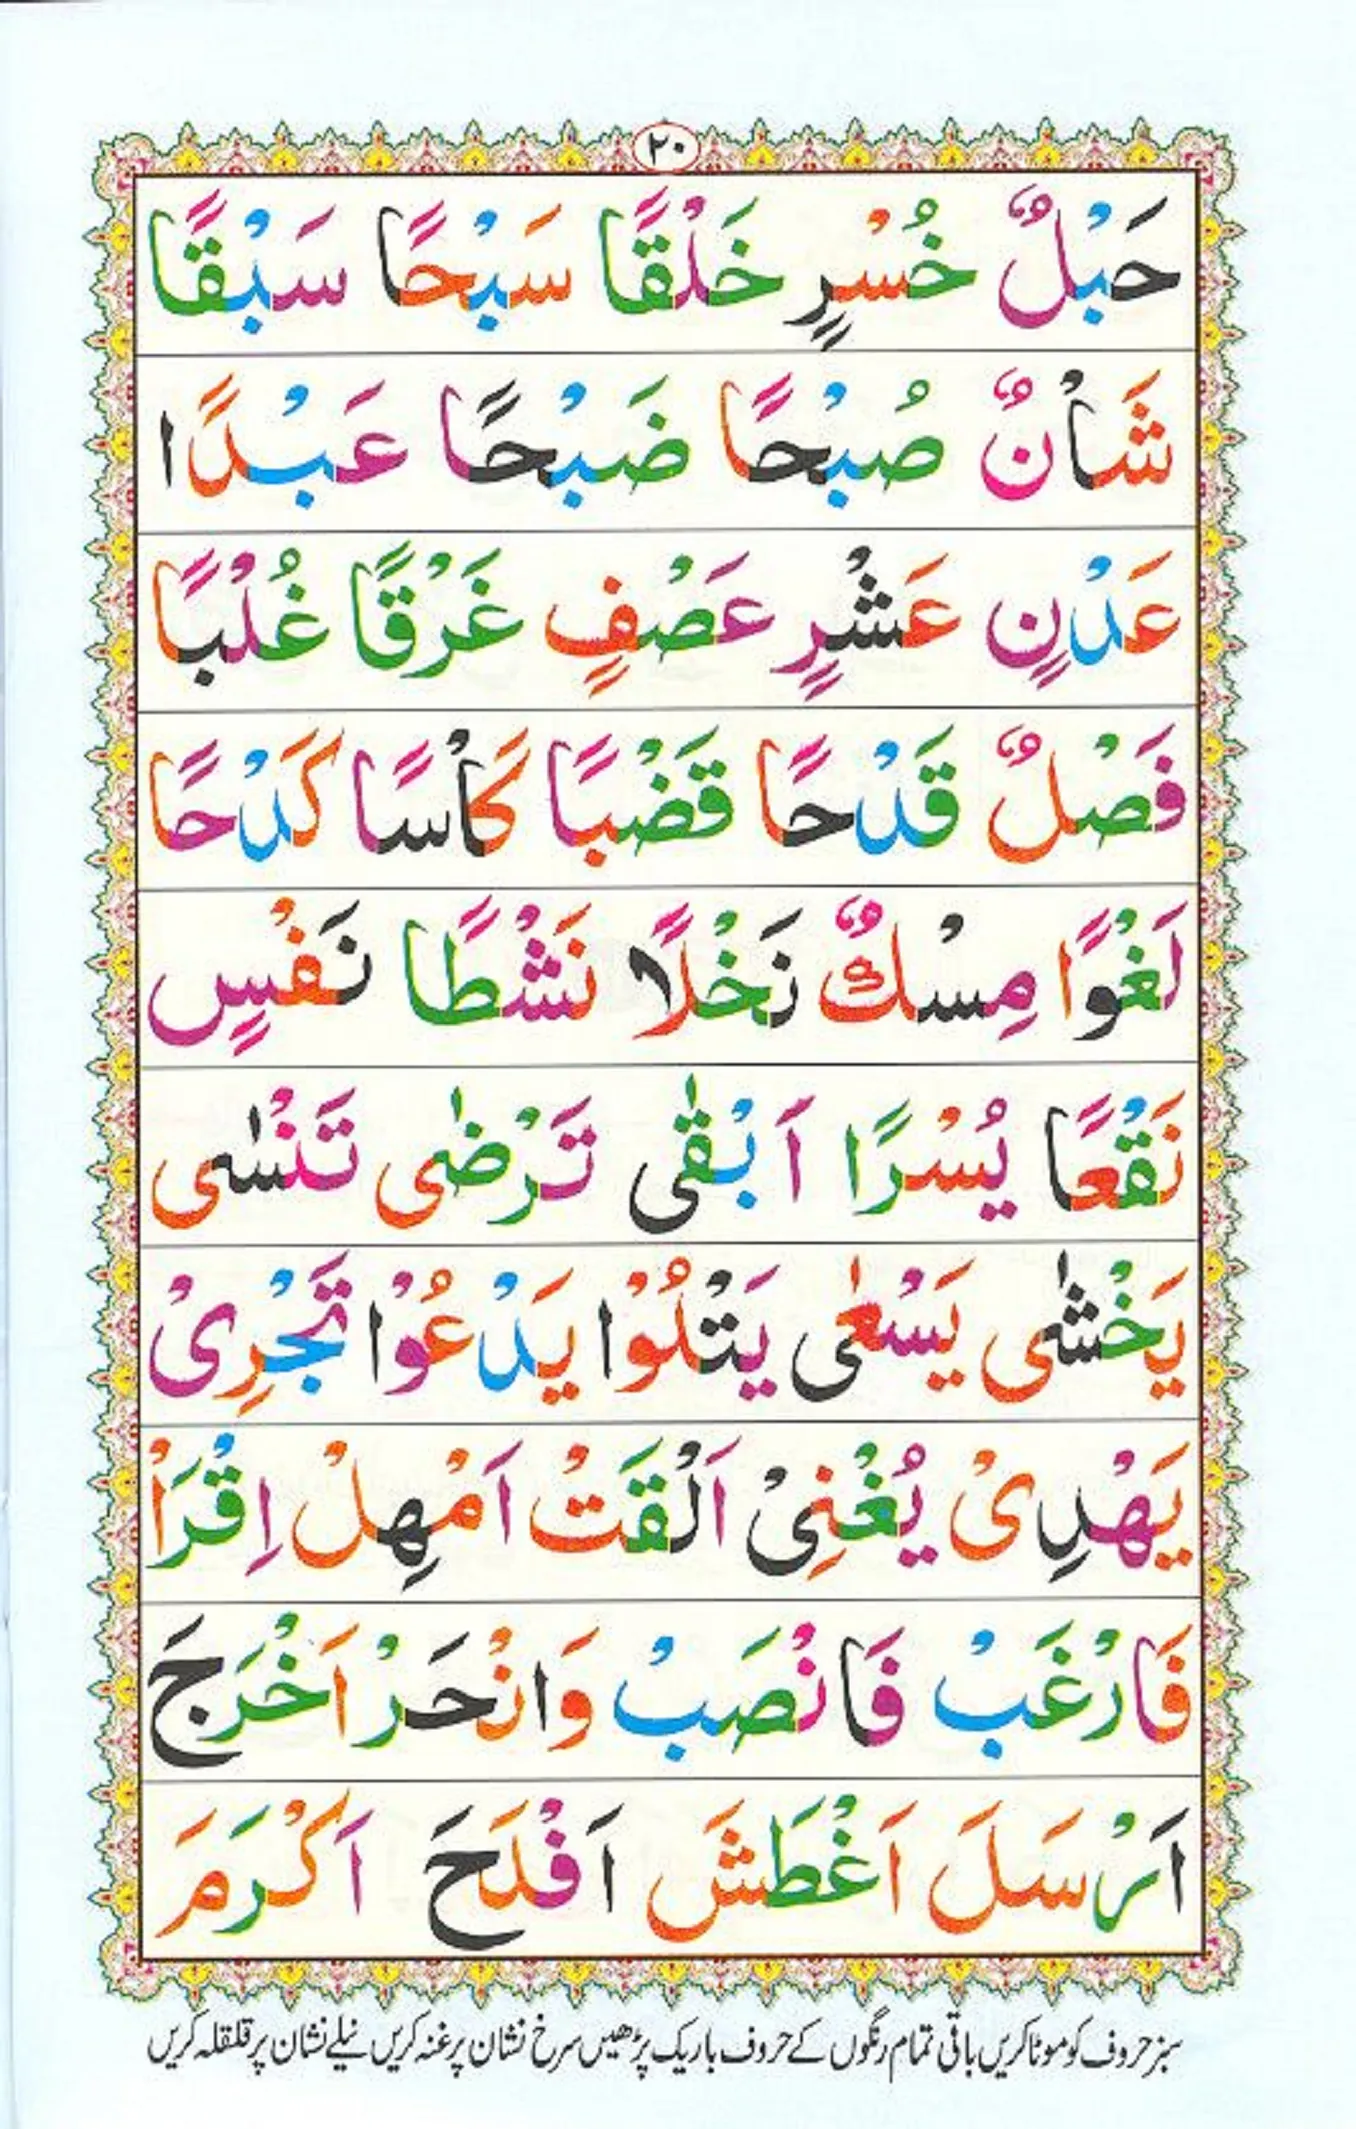 ٢٠
حَبْلٌ خُسْرٍ خَلْقًا سَبْحًا سَبْقًا
شَاْنٌ صُبْحًا ضَبْحًا عَبْدًا
عَدْنٍ عَشْرٍ عَصْفٍ غَرْقًا غُلْبًا
فَصْلٌ قَدْحًا قَضْبًا كَاْسًا كَدْحًا
لَغْوًا مِسْكٌ نَخْلًا نَشْطًا نَفْسٍ
نَقْعًا يُسْرًا اَبْقٰى تَرْضٰى تَنْسٰى
يَخْشٰى يَسْعٰى يَتْلُوْا يَدْعُوْا تَجْرِىْ
يَهْدِىْ يُغْنِىْ اَلْقَتْ اَمْهِلْ اِقْرَاْ
فَارْغَبْ فَانْصَبْ وَانْحَرْ اَخْرَجَ
اَرْسَلَ اَغْطَشَ اَفْلَحَ اَكْرَمَ
سبز حروف کو موٹا کریں باقی تمام رنگوں کے حروف باریک پڑھیں سرخ نشان پر غنہ کریں نیلے نشان پر قلقلہ کریں